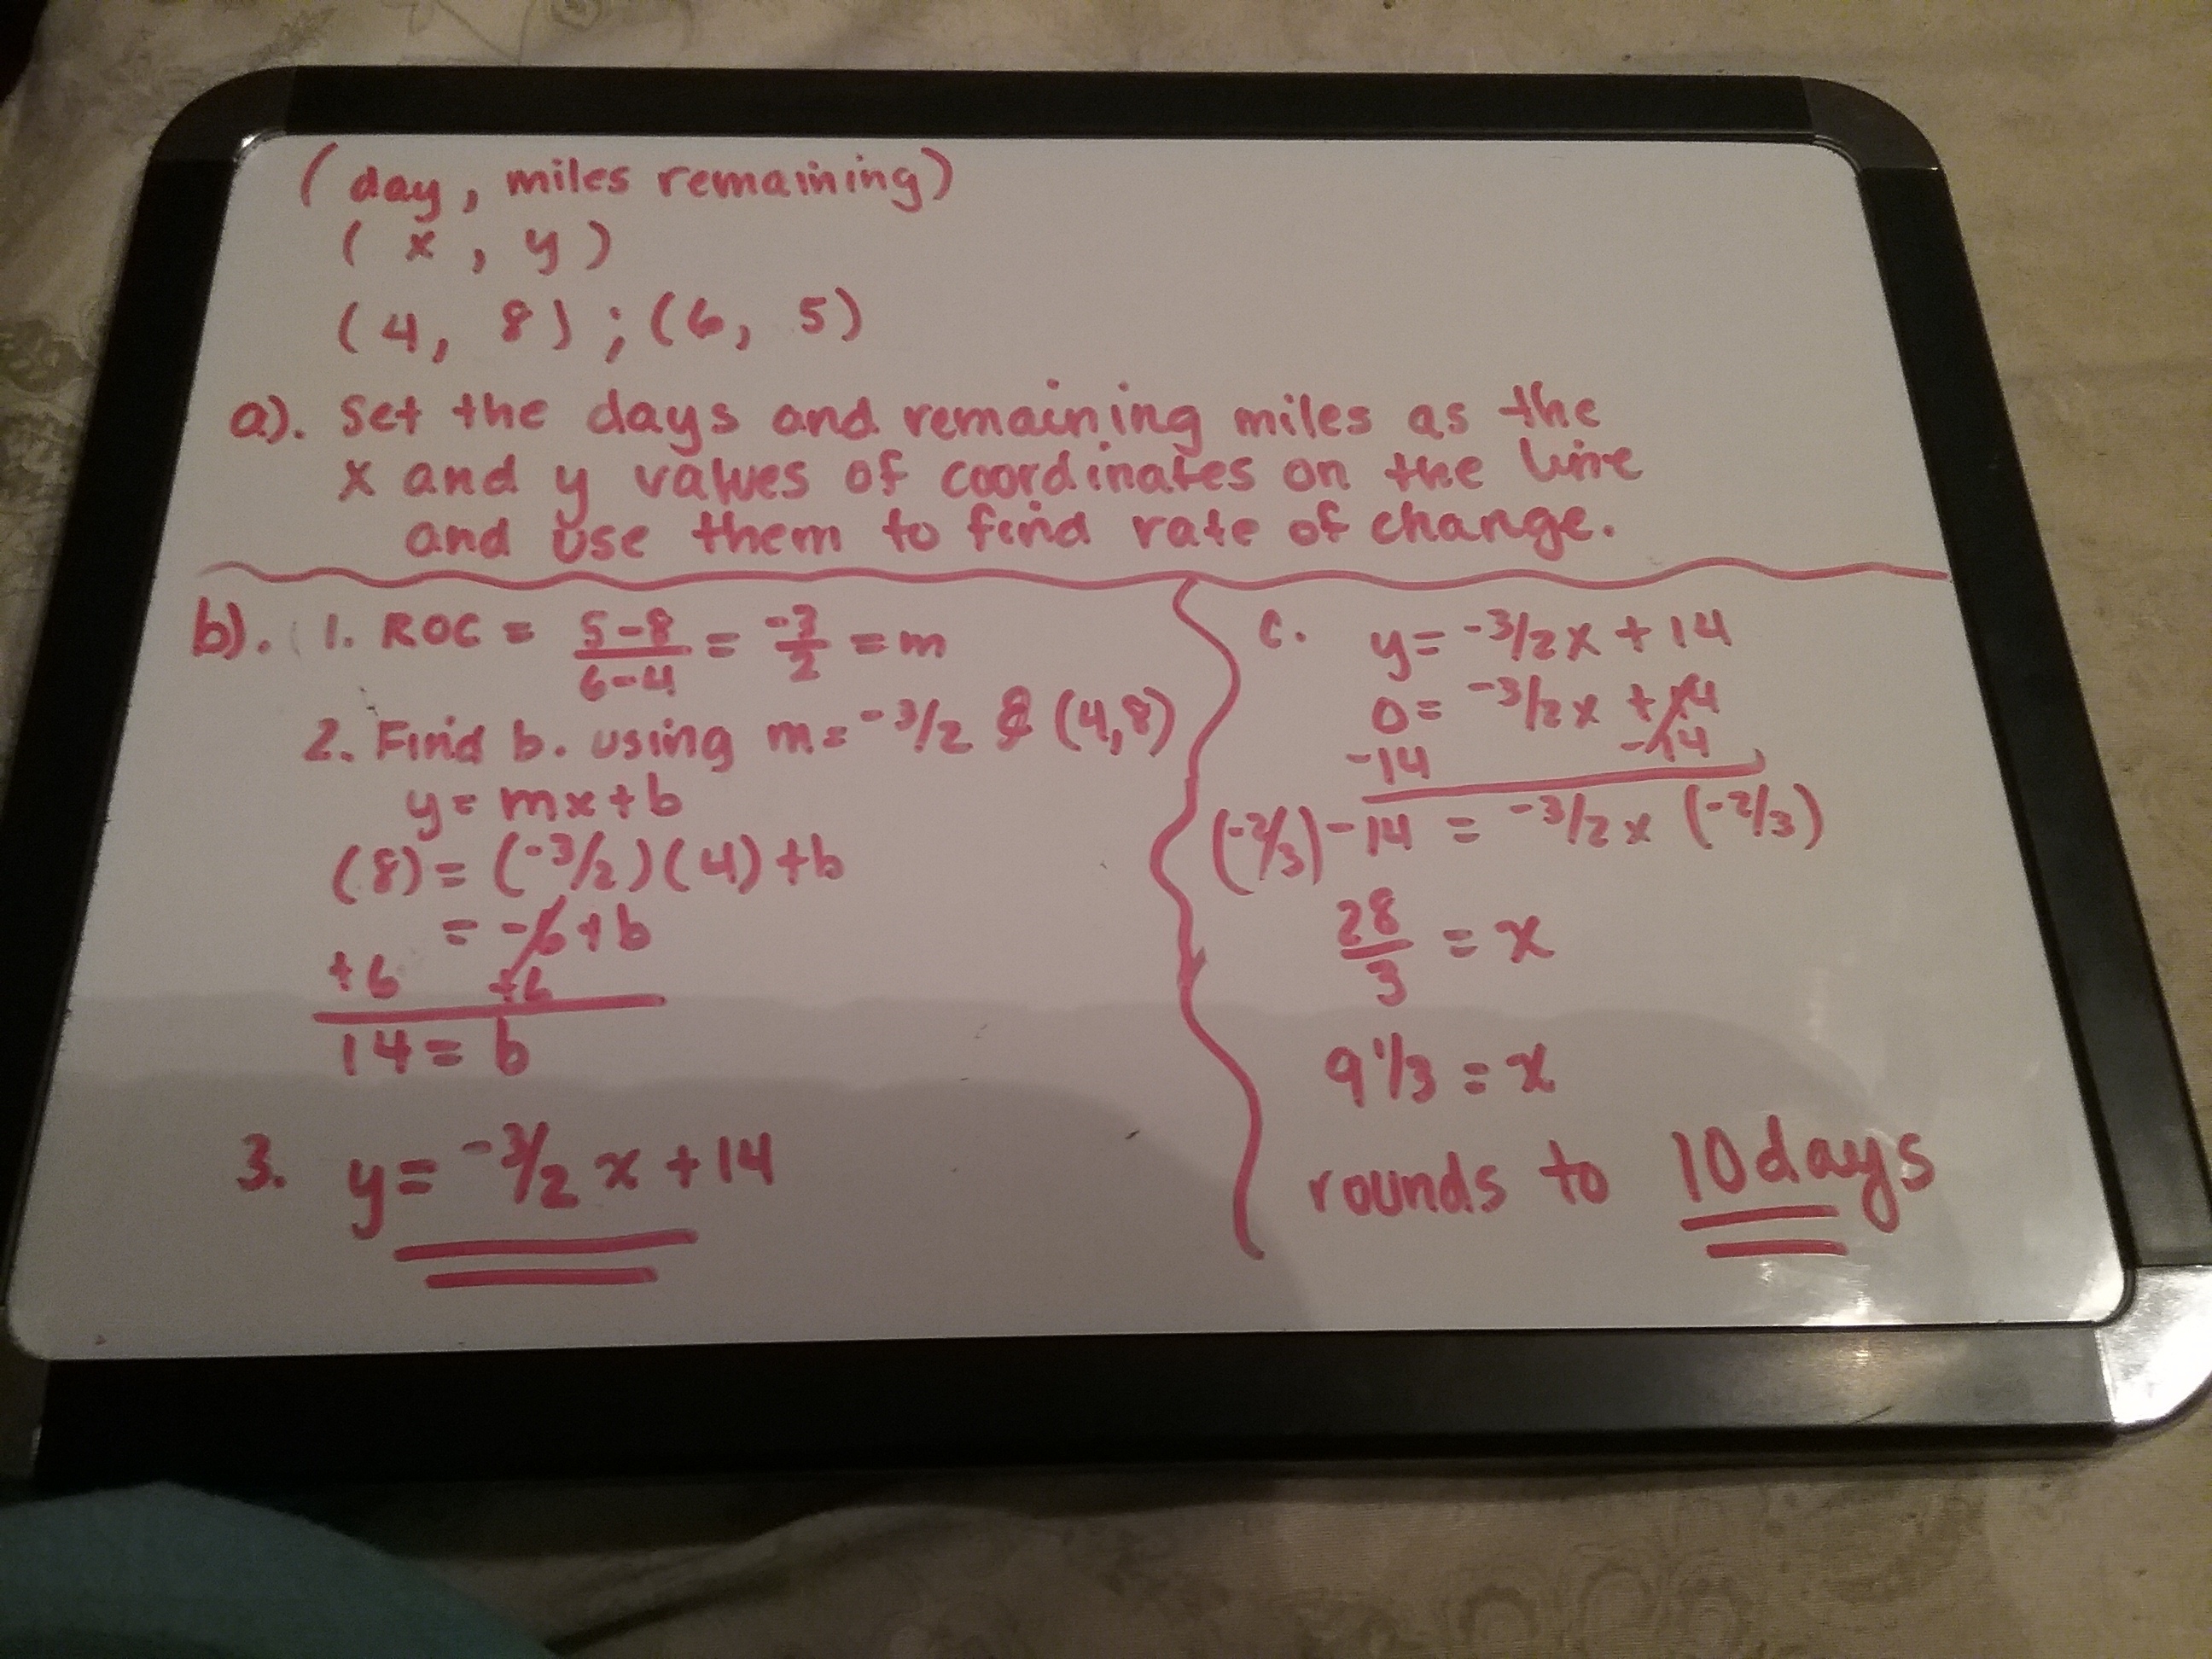 (day, miles remaining)
(x, y)
(4, 8); (6, 5)
a). Set the days and remaining miles as the
x and y values of coordinates on the line
and use them to find rate of change.
b). 1. ROC = 5-8/6-4 = -3/2 = m
2. Find b. using m= -3/2 & (4,8)
y= mx+b
(8)= (-3/2)(4)+b
= -6+b
+6 +6
14= b
3. y= -3/2 x+14
c. y= -3/2x + 14
0= -3/2x + 14
-14 -14
(-2/3)-14 = -3/2x (-2/3)
28/3 = x
9 1/3 = x
rounds to 10 days